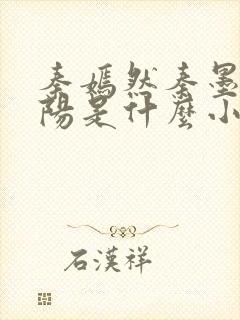 秦嫣然秦墨
陽是什麼小
石漢祥